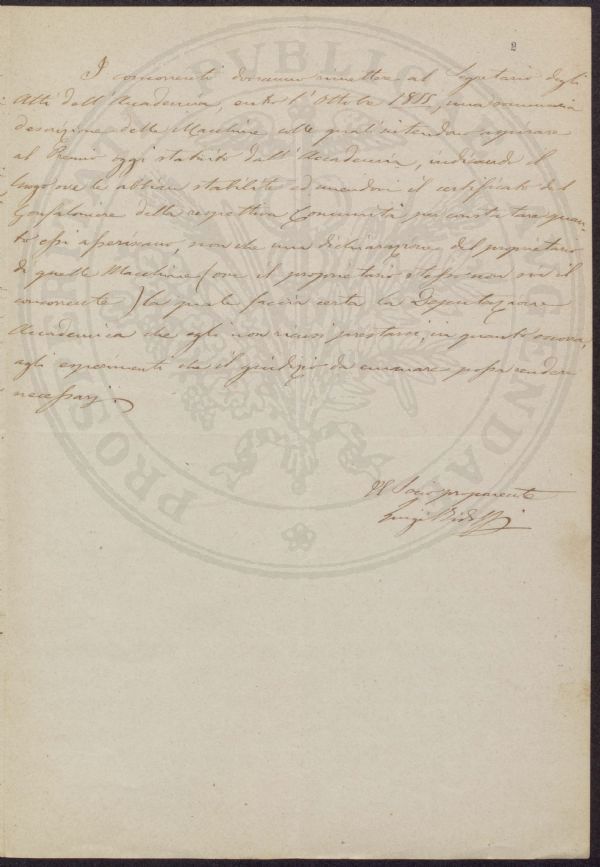 2
I concorrenti dovranno rimettere al Segretario degli
Atti dell'Accademia, entro l'Ottobre 1855, una sommaria
descrizione delle Macchine colle quali intendano aspirare
al Premio oggi stabilito dall'Accademia, indicando il
luogo ove le abbian stabilite ed unendovi il certificato del
Gonfaloniere della respettiva Comunità per constatare quan-
to essi asseriscano, non che una dichiarazione del proprietario
di quelle Macchine (ove il proprietario stesso non sia il
concorrente) la quale faccia certa la Deputazione
Accademica che egli non ricusi prestarsi, in quanto occorra,
agli esperimenti che il giudizio da emanare possa rendere
necessarj.
Il Socio proponente
Luigi Ridolfi
PROSPERITATI PVBLICAE AVGENDAE